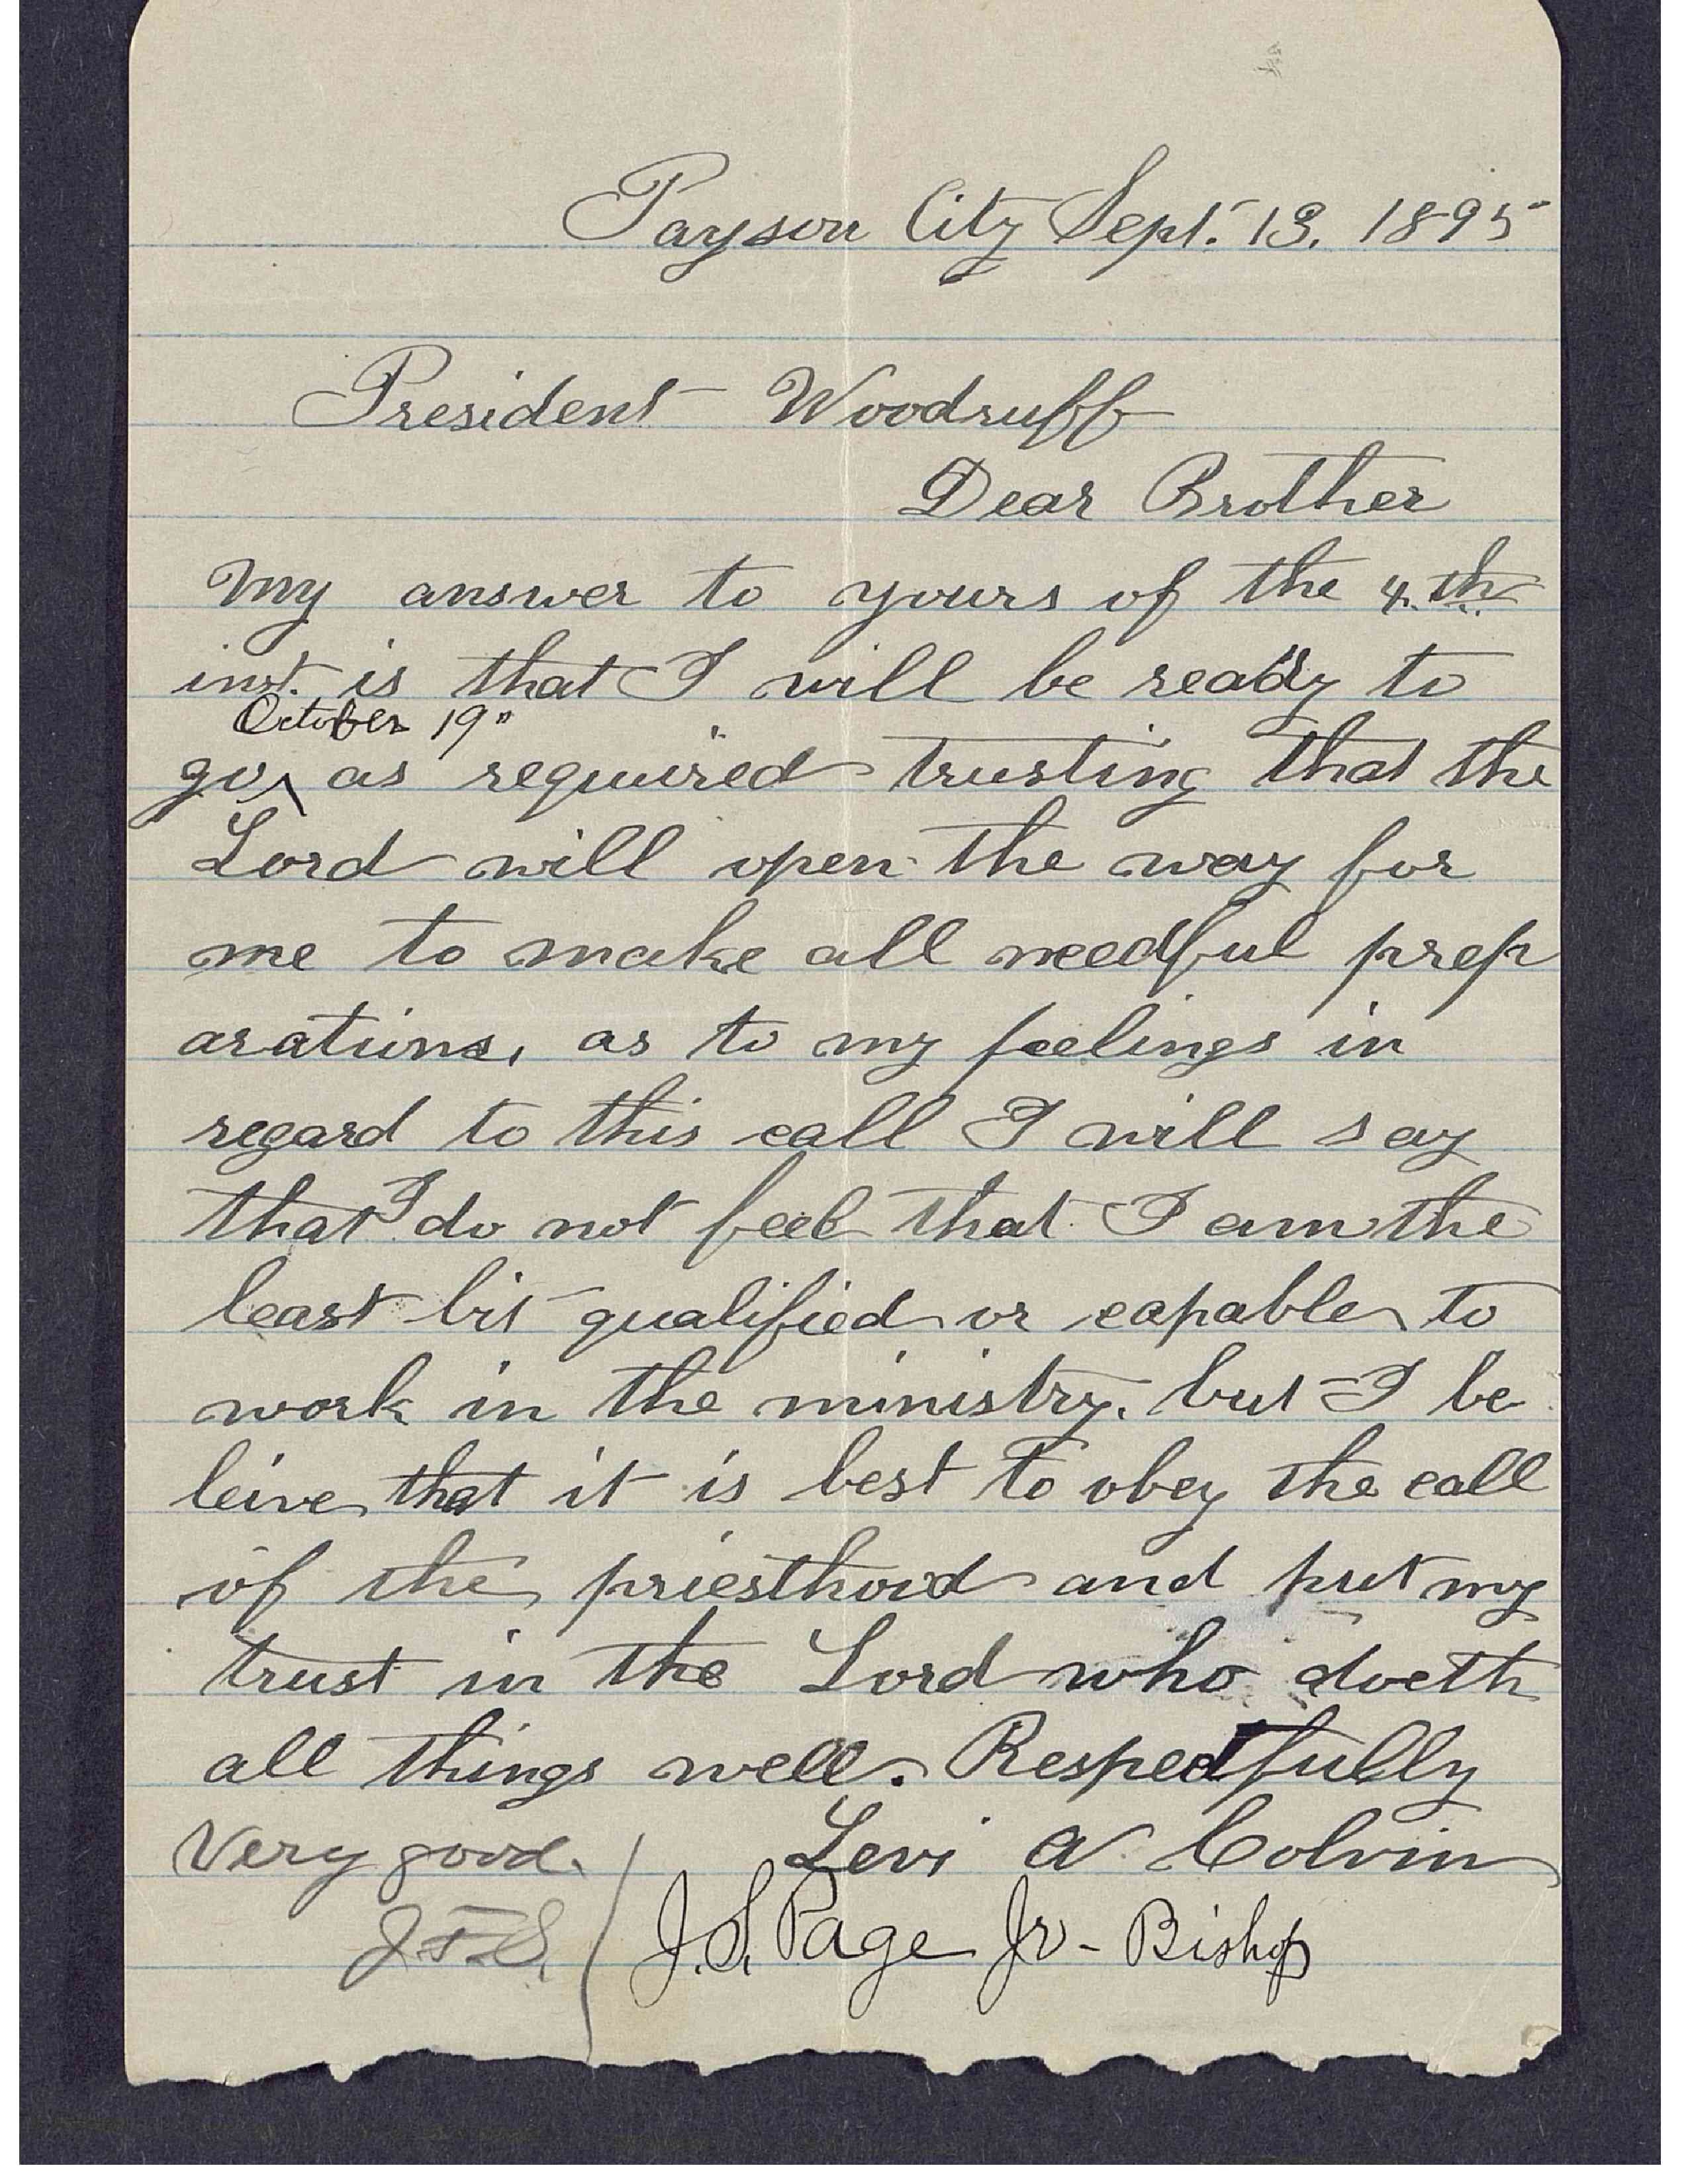 Payson City Sept. 13. 1895
President Woodruff
Dear Brother
My answer to yours of the 4th
inst. is that I will be ready to
October 19"
go^ as required trusting that the
Lord will open the way for
me to make all needful prep
arations, as to my feelings in
regard to this call I will say
that I do not feel that I am the
least bit qualified or capable to
work in the ministry. but I be
leive that it is best to obey the call
of the priesthood and put my
trust in the Lord who doeth
all things well. Respectfully
Levi A Colvin
Very good.
J. F. S.
J. S. Page Jr - Bishop